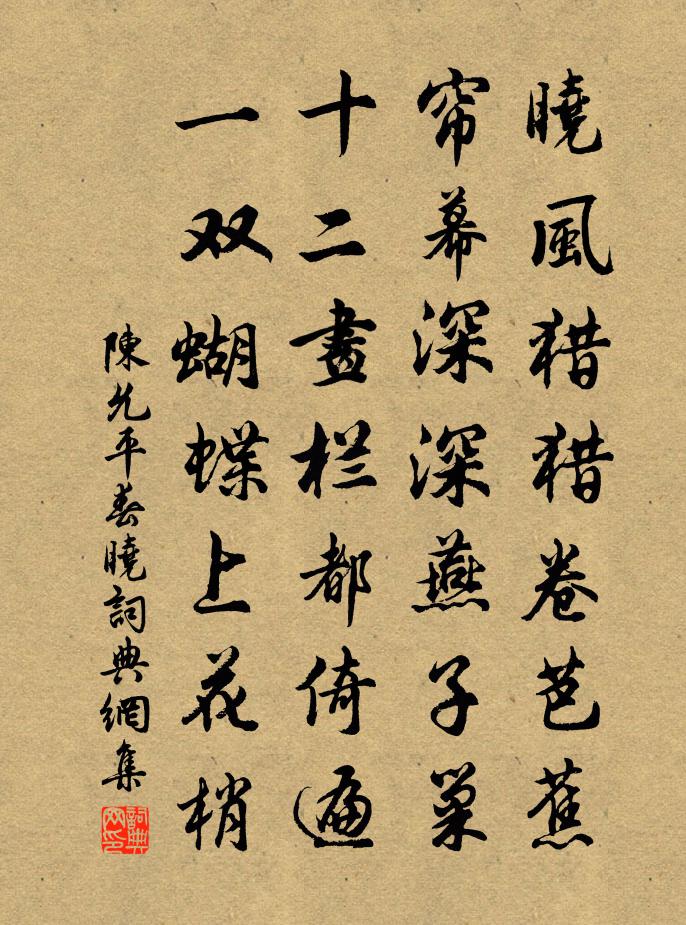 曉風猎猎卷芭蕉
帘幕深深燕子巢
十二畫栏都倚遍
一双蝴蝶上花梢
陳允平春曉詞典網集
詞典网印